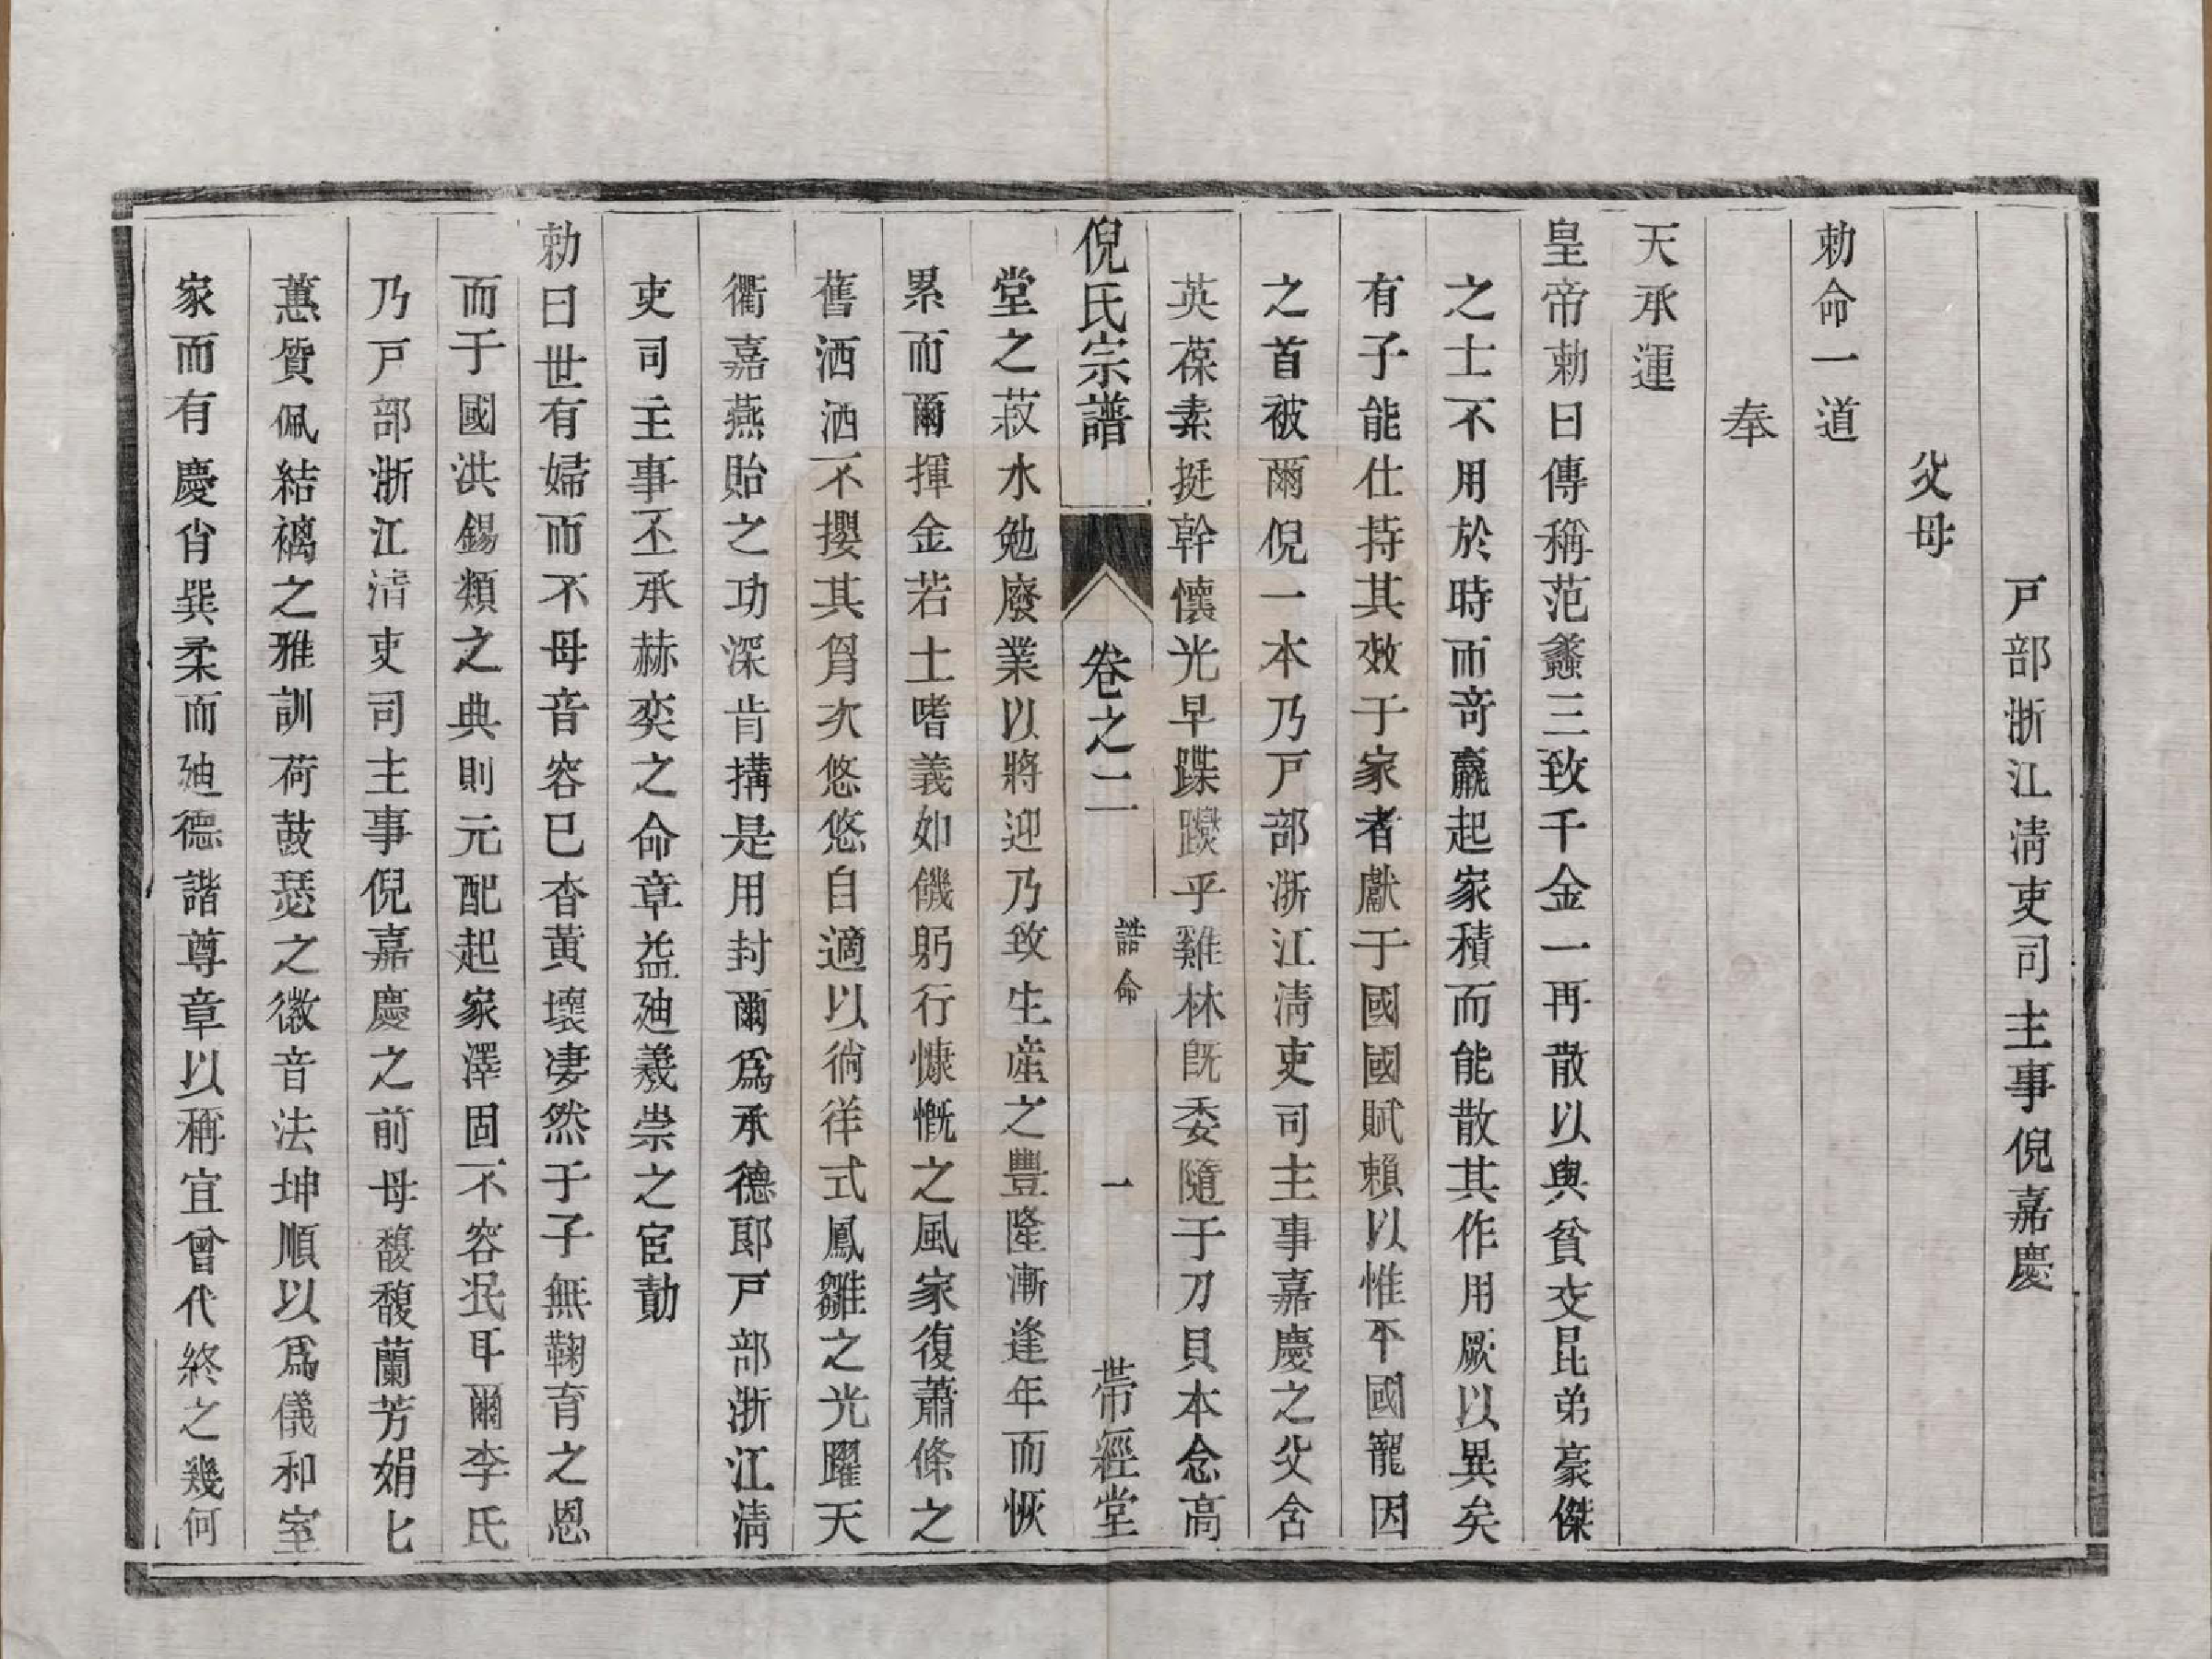 戸部浙江淸吏司主事倪嘉慶
父母
勅命一道
奉
天承運
皇帝勅曰傳稱范蠡三致千金一再散以與貧交昆弟豪傑
之士不用於時而竒贏起家積而能散其作用厥以異矣
有子能仕持其效于家者獻于國國賦頼以惟平國寵因
之首被爾倪一本乃戸部浙江淸吏司主事嘉慶之父含
英葆素挺幹懷光早蹀躞乎雞林旣委隨于刀貝本念高
倪氏宗譜
卷之二
誥命
一
帶經堂
堂之菽水勉廢業以將迎乃致生産之豐隆漸逢年而恢
累而爾揮金若土嗜義如饑躬行慷慨之風家復蕭條之
舊洒洒不攖其胷次悠悠自適以徜徉式鳳雛之光躍天
衢嘉燕貽之功深肯搆是用封爾爲承德郎戸部浙江淸
吏司主事丕承赫奕之命章益廸義崇之宦勣
勅曰世有婦而不母音容已杳黃壤凄然于子無鞠育之恩
而于國洪錫類之典則元配起家澤固不容泯耳爾李氏
乃戸部浙江清吏司主事倪嘉慶之前母馥馥蘭芳娟匕
蕙質佩結褵之雅訓荷鼓瑟之徽音法坤順以爲儀和室
家而有慶肖巽柔而廸德諧尊章以稱宜曾代終之幾何